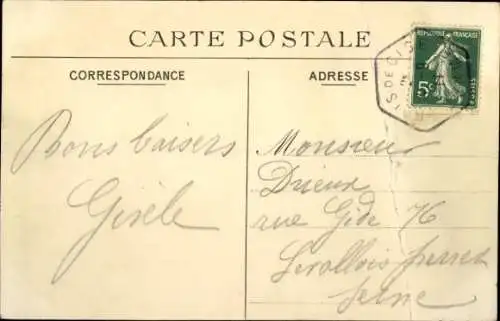 CARTE POSTALE
CORRESPONDANCE
ADRESSE
REPUBLIQUE FRANÇAISE
5c
POSTES
Bons baisers
Gisèle
Monsieur
Drieux
rue Gide 76
Levallois Perret
Seine